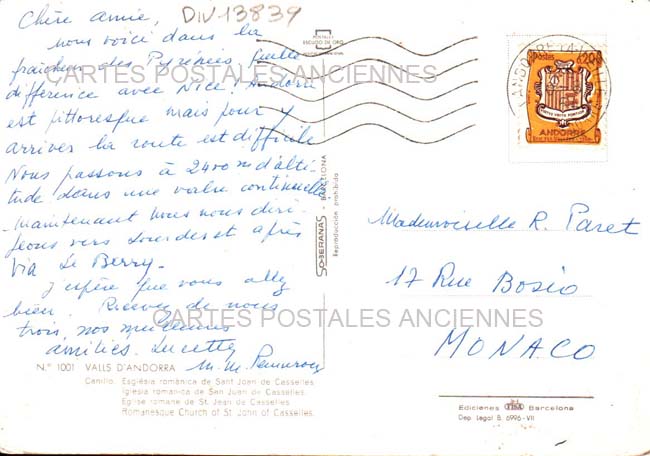 DIV13839
Chère amie,
nous voici dans la
fraicheur des Pyrénées, quelle
différence avec Nice! Andorre
est pittoresque mais pour y
arriver la route est difficile
Nous passons à 2400 m d'alti-
tude dans une valse continuelle
- Maintenant nous nous diri-
geons vers Lourdes et après
via Le Berry -
J'espère que vous allez
bien. Recevez de nous
trois, nos meilleures
amitiés. Lucette
M. M.
CARTES POSTALES ANCIENNES
CARTES POSTALES ANCIENNES
N.º 1001 VALLS D'ANDORRA
Canillo. Església romànica de Sant Joan de Casselles.
Iglesia románica de San Juan de Casselles.
Eglise romane de St. Jean de Casselles.
Romanesque Church of St. John of Casselles.
POSTALES
ESCUDO DE ORO
SOBERANAS - BARCELONA
Reproducción prohibida
Postes
ANDORRE
Mademoiselle R. Paret
17 Rue Bosio
MONACO
Ediciones FISA Barcelona
Dep. Legal B. 6996-VII